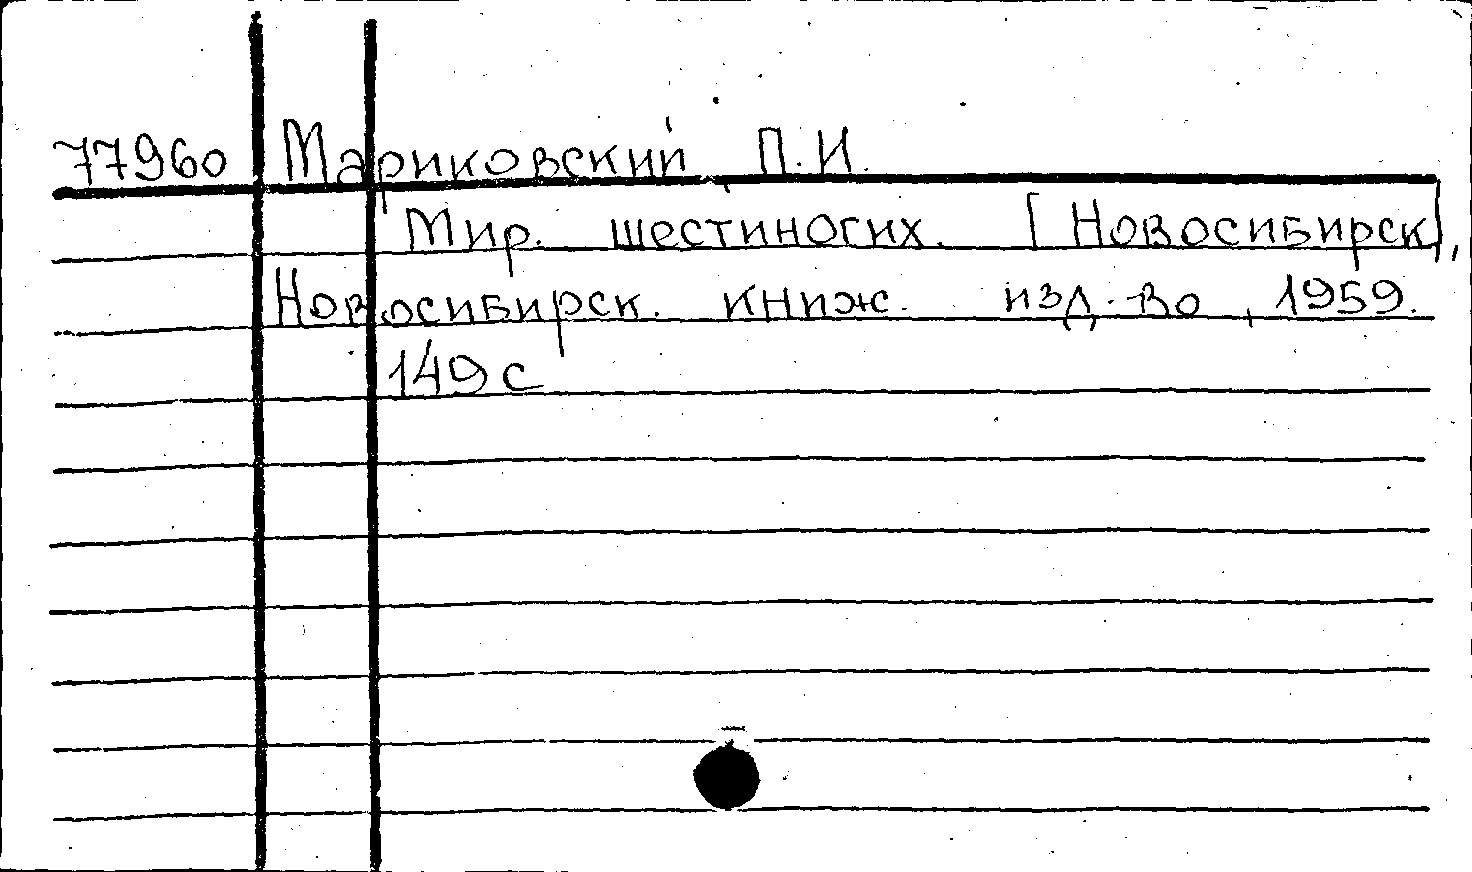 77960 Мариковский П.И.
Мир. шестиногих. [Новосибирск],
Новосибирск. книж. изд-во, 1959.
149 с